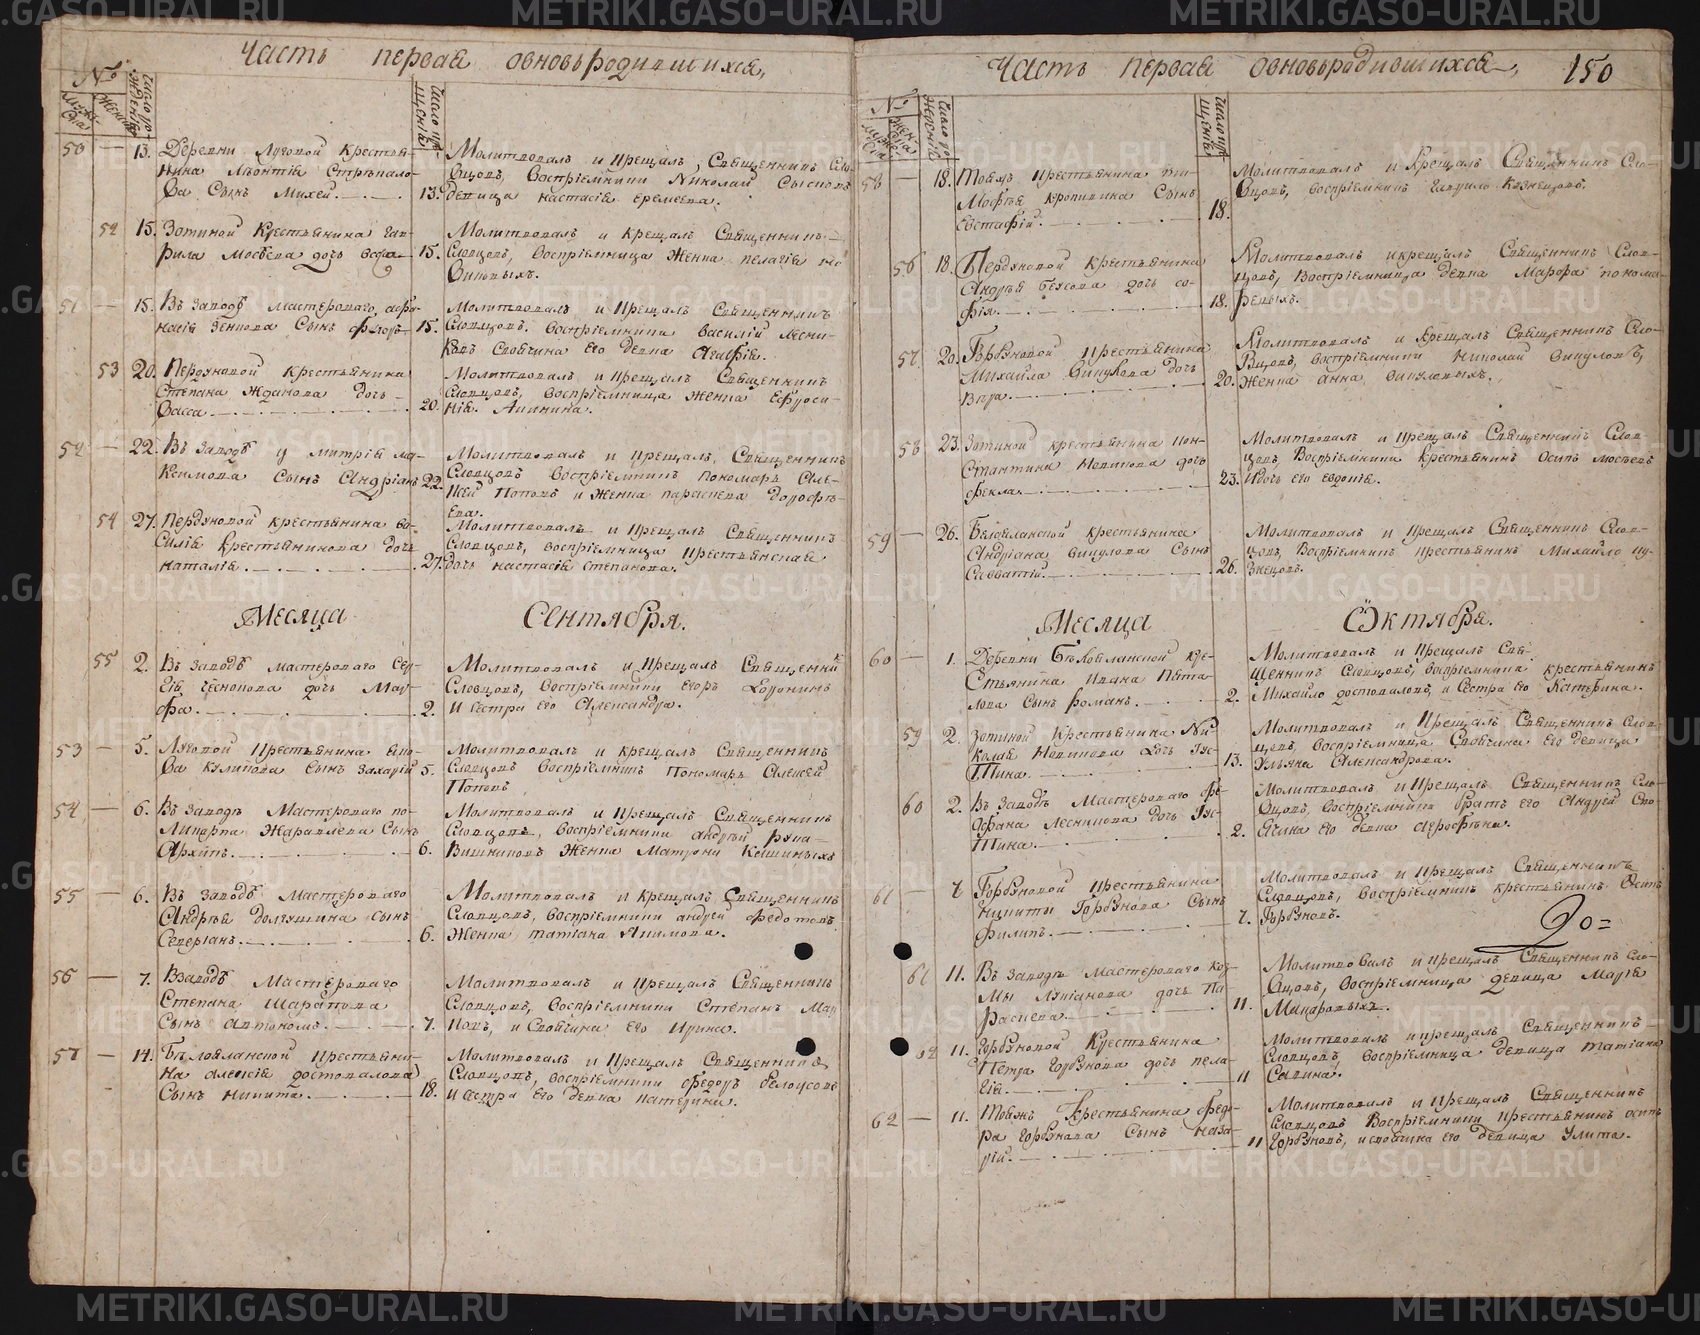 Часть первая оновородившихся,
№
Мужеска
Женска
Число рождения
Число крещения
50 — 13. Деревни Луговой крестья-
нина Леонтія Стрекало-
ва Сынъ Михей. 13.
Молитвовалъ и крещалъ Священникъ Сло-
вцовъ, Воспріемники Николай
девица настасія еремеева.
52 15. Зотиной Крестьянина Гав-
рила Мосеева дочь васса 15.
Молитвовалъ и крещалъ Священникъ
Словцовъ, Воспріемница Женка пелагія
51 — 15. Въ Заводѣ мастероваго афо-
насія Зенкова Сынъ Федоръ 15.
Молитвовалъ и крещалъ Священникъ
Словцовъ. Воспріемники василій лесни-
ковъ Своячина его девка Агафія.
53 20. Пердуновой Крестьянина
Степана Жданова дочь
Васса 20.
Молитвовалъ и крещалъ Священникъ
Словцовъ, Воспріемница Женка Ефроси-
нія. Аникина.
52 — 22. Въ Заводѣ у митрія ма-
ксимова Сынъ Андріанъ 22.
Молитвовалъ и крещалъ, Священникъ
Словцовъ Воспріемникъ пономарь Але-
ксей Поповъ и Женка параскева дорофѣ-
ева.
54 27. Пердуновой крестьянина ва-
силія крестьянникова дочь
наталія. 27.
Молитвовалъ и крещалъ Священникъ
Словцовъ, воспріемница крестьянская
дочь настасія степанова.
Месяца Сентября.
55 2. Въ заводѣ мастероваго Сер-
гія чеснокова дочь Мар-
фа. 2.
Молитвовалъ и крещалъ Священни
Словцовъ, Воспріемники егоръ
и сестра его Александра.
53 — 5. Луговой крестьянина
куликова Сынъ Захарій 5.
Молитвовалъ и крещалъ Священникъ
Словцовъ Воспріемникъ Пономарь Алексей
Поповъ
54 — 6. Въ заводѣ Мастероваго по-
ликарпа Жаравлева Сынъ
Архипъ. 6.
Молитвовалъ и крещалъ Священникъ
Словцовъ, Воспріемники андрей рука-
вишниковъ Женка Матрона
55 — 6. Въ заводѣ мастероваго
Андрѣя долгушина сынъ
Северіанъ. 6.
Молитвовалъ и крещалъ Священникъ
Словцовъ, воспріемники андрей Федотовъ
Женка татіана Якимова.
56 — 7. Взаводѣ Мастероваго
Степана Шарапова
Сынъ автономъ. 7.
Молитвовалъ и крещалъ Священникъ
Словцовъ, Воспріемники Степанъ
и Своячина его Ирина.
57 — 14. Беловланской крестьяни-
на алексія достовалова
Сынъ никита. 18.
Молитвовалъ и крещалъ Священникъ
Словцовъ, воспріемники Федоръ белоусовъ
и сестра его девка катерина.
Часть первая оновородившихся, 150
№
Мужеска
Женска
Число рождения
Число крещения
58 — 18. Тоежъ крестьянина ти-
мофѣя кропивина Сынъ
Евстафій. 18.
Молитвовалъ и крещалъ Священникъ Сло-
вцовъ, Воспріемникъ гаврило Кознецовъ.
56 18. Пердуновой крестьянина
Андрѣя Белоусова дочь со-
фія. 18.
Молитвовалъ икрещалъ Священникъ Слов-
цовъ, Воспріемница девка Марфа понома-
ревыхъ.
57 20. Горбуновой крестьянина
Михайла Викулова дочь
вѣра. 20.
Молитвовалъ и крещалъ Священникъ Сло-
вцовъ, Воспріемники николай викуловъ,
Женка анна, викуловыхъ.
58 23. Зотиной крестьянина кон-
стантина новикова дочь
фекла. 23.
Молитвовалъ и крещалъ Священникъ Слов-
цовъ, Воспріемники крестьянинъ Осипъ мосѣевъ
Идочь его евдокія.
59 — 26. Беловланской крестьянина
Андріана викулова Сынъ
Савватій. 26.
Молитвовалъ и крещалъ Священникъ Слов-
цовъ, Воспріемникъ крестьянинъ Михайло ку-
знецовъ.
Месяца Октября.
60 — 1. Деревни Бѣловланской кре-
стьянина ивана пята-
кова Сынъ романъ. 2.
Молитвовалъ и крещалъ Свя-
щенникъ Словцовъ, воспріемники крестьянинъ
Михайло достоваловъ, и Сестра его Катерина.
59 2. Зотиной Крестьянина Ни-
колая Новикова дочь Ус-
тина. 13.
Молитвовалъ и крещалъ Священникъ Слов-
цовъ, воспріемница Своячина его девица
Ульяна Александрова.
60 2. Въ заводѣ Мастероваго Фе-
дофана лесникова дочь Ус-
тина. 2.
Молитвовалъ и крещалъ Священникъ Сло-
вцовъ, воспріемники братъ его Андрей Сво-
ячина его девка
61 — 7 Горбуновой крестьянина
никиты Горбунова Сынъ
филипъ. 7.
Молитвовалъ и крещалъ Священникъ
Словцовъ, воспріемникъ крестьянинъ Осипъ
Горбуновъ.
20=
61 11. Въ заводѣ мастероваго коз-
мы лукіанова дочь Па-
раскева. 11.
Молитвовалъ и крещалъ Священникъ Сло-
вцовъ, воспріемница девица Марія
Макаровыхъ.
62 11. Горбуновой Крестьянина
Петра горбунова дочь пела-
гія. 11
Молитвовалъ икрещалъ Священникъ
Словцовъ, воспріемница девица татіана
Савина.
62 — 11. Тоежъ Крестьянина Федо-
ра горбунова Сынъ наза-
рій. 11
Молитвовалъ и крещалъ Священникъ
Словцовъ Воспріемники крестьянинъ осипъ
Горбуновъ, исвоячина его девица Улита.